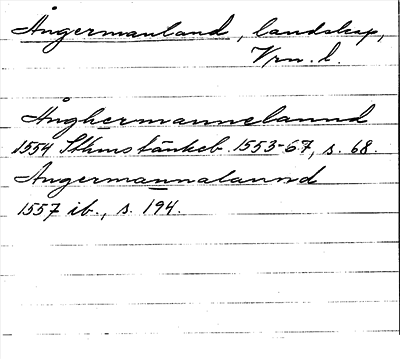 Ångermanland, landskap,
Vrn. l.
Ånghermannelannd
1554 Sthms tänkeb. 1553-67, s. 68.
Angermannalannd
1557 ib., s. 194.